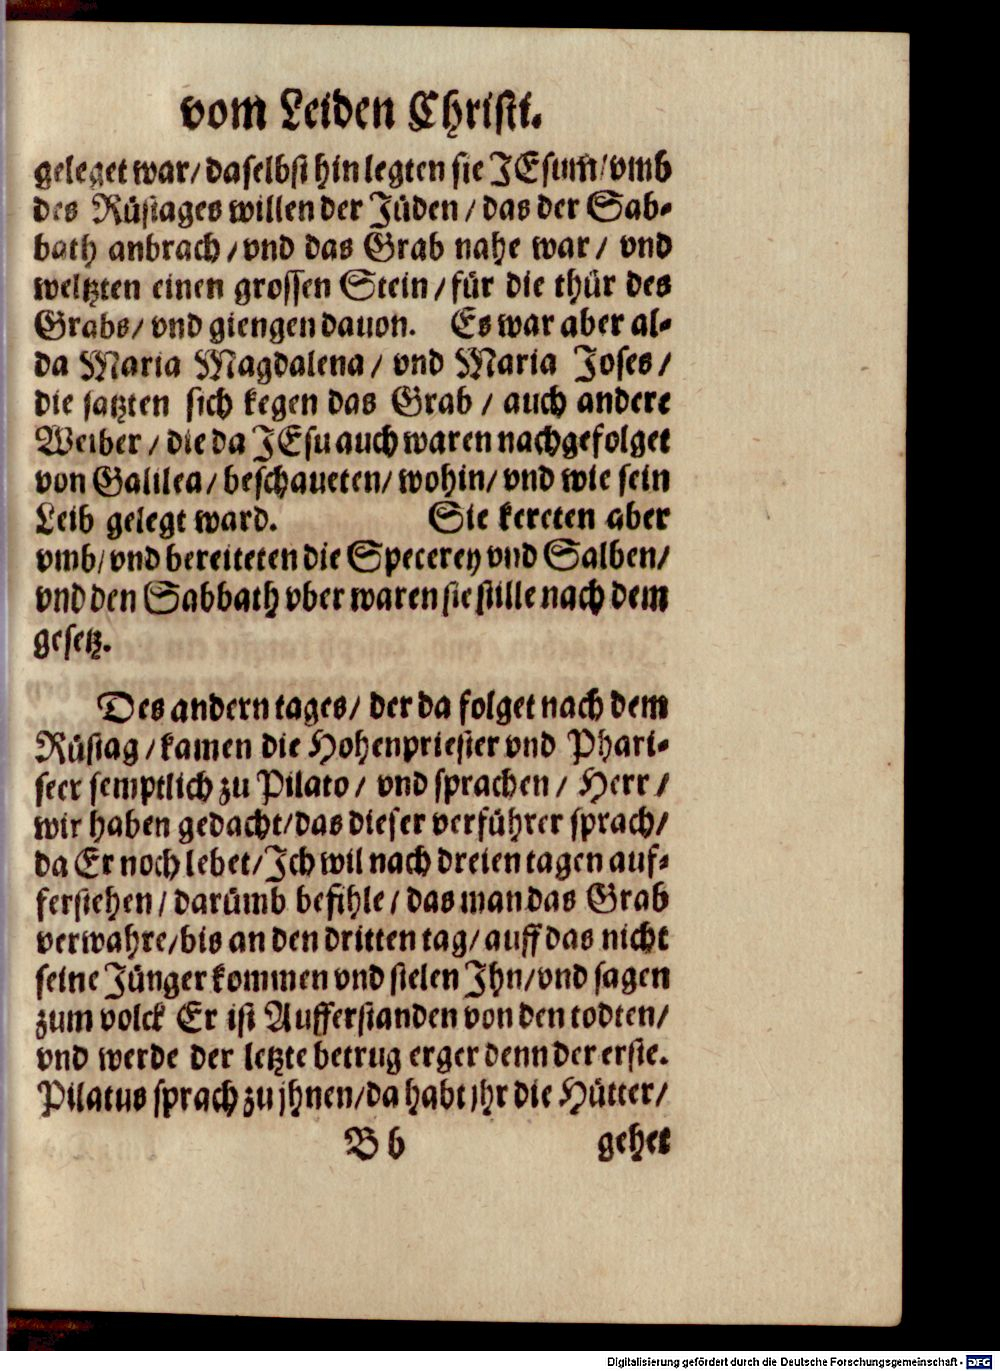 vom Leiden Christi.
geleget war/ daselbst hin legten sie JEsum/ vmb
des Rüstages willen der Jüden / das der Sab-
bath anbrach / vnd das Grab nahe war / vnd
weltzten einen grossen Stein / für die thür des
Grabs/ vnd giengen dauon. Es war aber al-
da Maria Magdalena / vnd Maria Joses /
die satzten sich kegen das Grab / auch andere
Weiber / die da JEsu auch waren nachgefolget
von Galilea/ beschaueten/ wohin/ vnd wie sein
Leib gelegt ward. Sie kereten aber
vmb/ vnd bereiteten die Specerey vnd Salben/
vnd den Sabbath vber waren sie stille nach dem
gesetz.
Des andern tages/ der da folget nach dem
Rüstag / kamen die Hohenpriester vnd Phari-
seer semptlich zu Pilato / vnd sprachen / Herr /
wir haben gedacht/ das dieser verführer sprach/
da Er noch lebet/ Jch wil nach dreien tagen auf-
ferstehen / darümb befihle / das man das Grab
verwahre/ bis an den dritten tag/ auff das nicht
seine Jünger kommen vnd stelen Jhn/ vnd sagen
zum volck Er ist Aufferstanden von den todten/
vnd werde der letzte betrug erger denn der erste.
Pilatus sprach zu jhnen/ da habt jhr die Hütter/
B b gehet
Digitalisierung gefördert durch die Deutsche Forschungsgemeinschaft - DFG